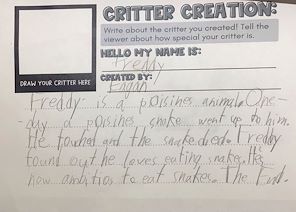 CRITTER CREATION:
Write about the critter you created! Tell the
viewer about how special your critter is.
HELLO MY NAME IS:
Freddy
DRAW YOUR CRITTER HERE
CREATED BY:
Freddy is a poisines animal. One-
-day a poisines snake went up to him.
He touched and the snake died. Freddy
found out he loves eating snakes. He's
now ambitios to eat snakes. The End.